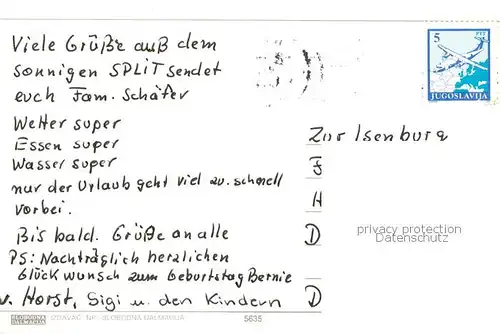 Viele Grüße auß dem
sonnigen SPLIT sendet
euch Fam. Schäfer
Wetter super
Essen super
Wasser super
nur der Urlaub geht viel zu schnell
vorbei.
Bis bald. Grüße an alle
PS: Nachträglich herzlichen
Glückwunsch zum Geburtstag Bernie
v. Horst, Sigi u. den Kindern
5
PTT
JUGOSLAVIJA
Zur Isenburg
F
H
D
D
privacy protection
Datenschutz
SLOBODNA
DALMACIJA
IZDAVAČ NP - SLOBODNA DALMACIJA
5635